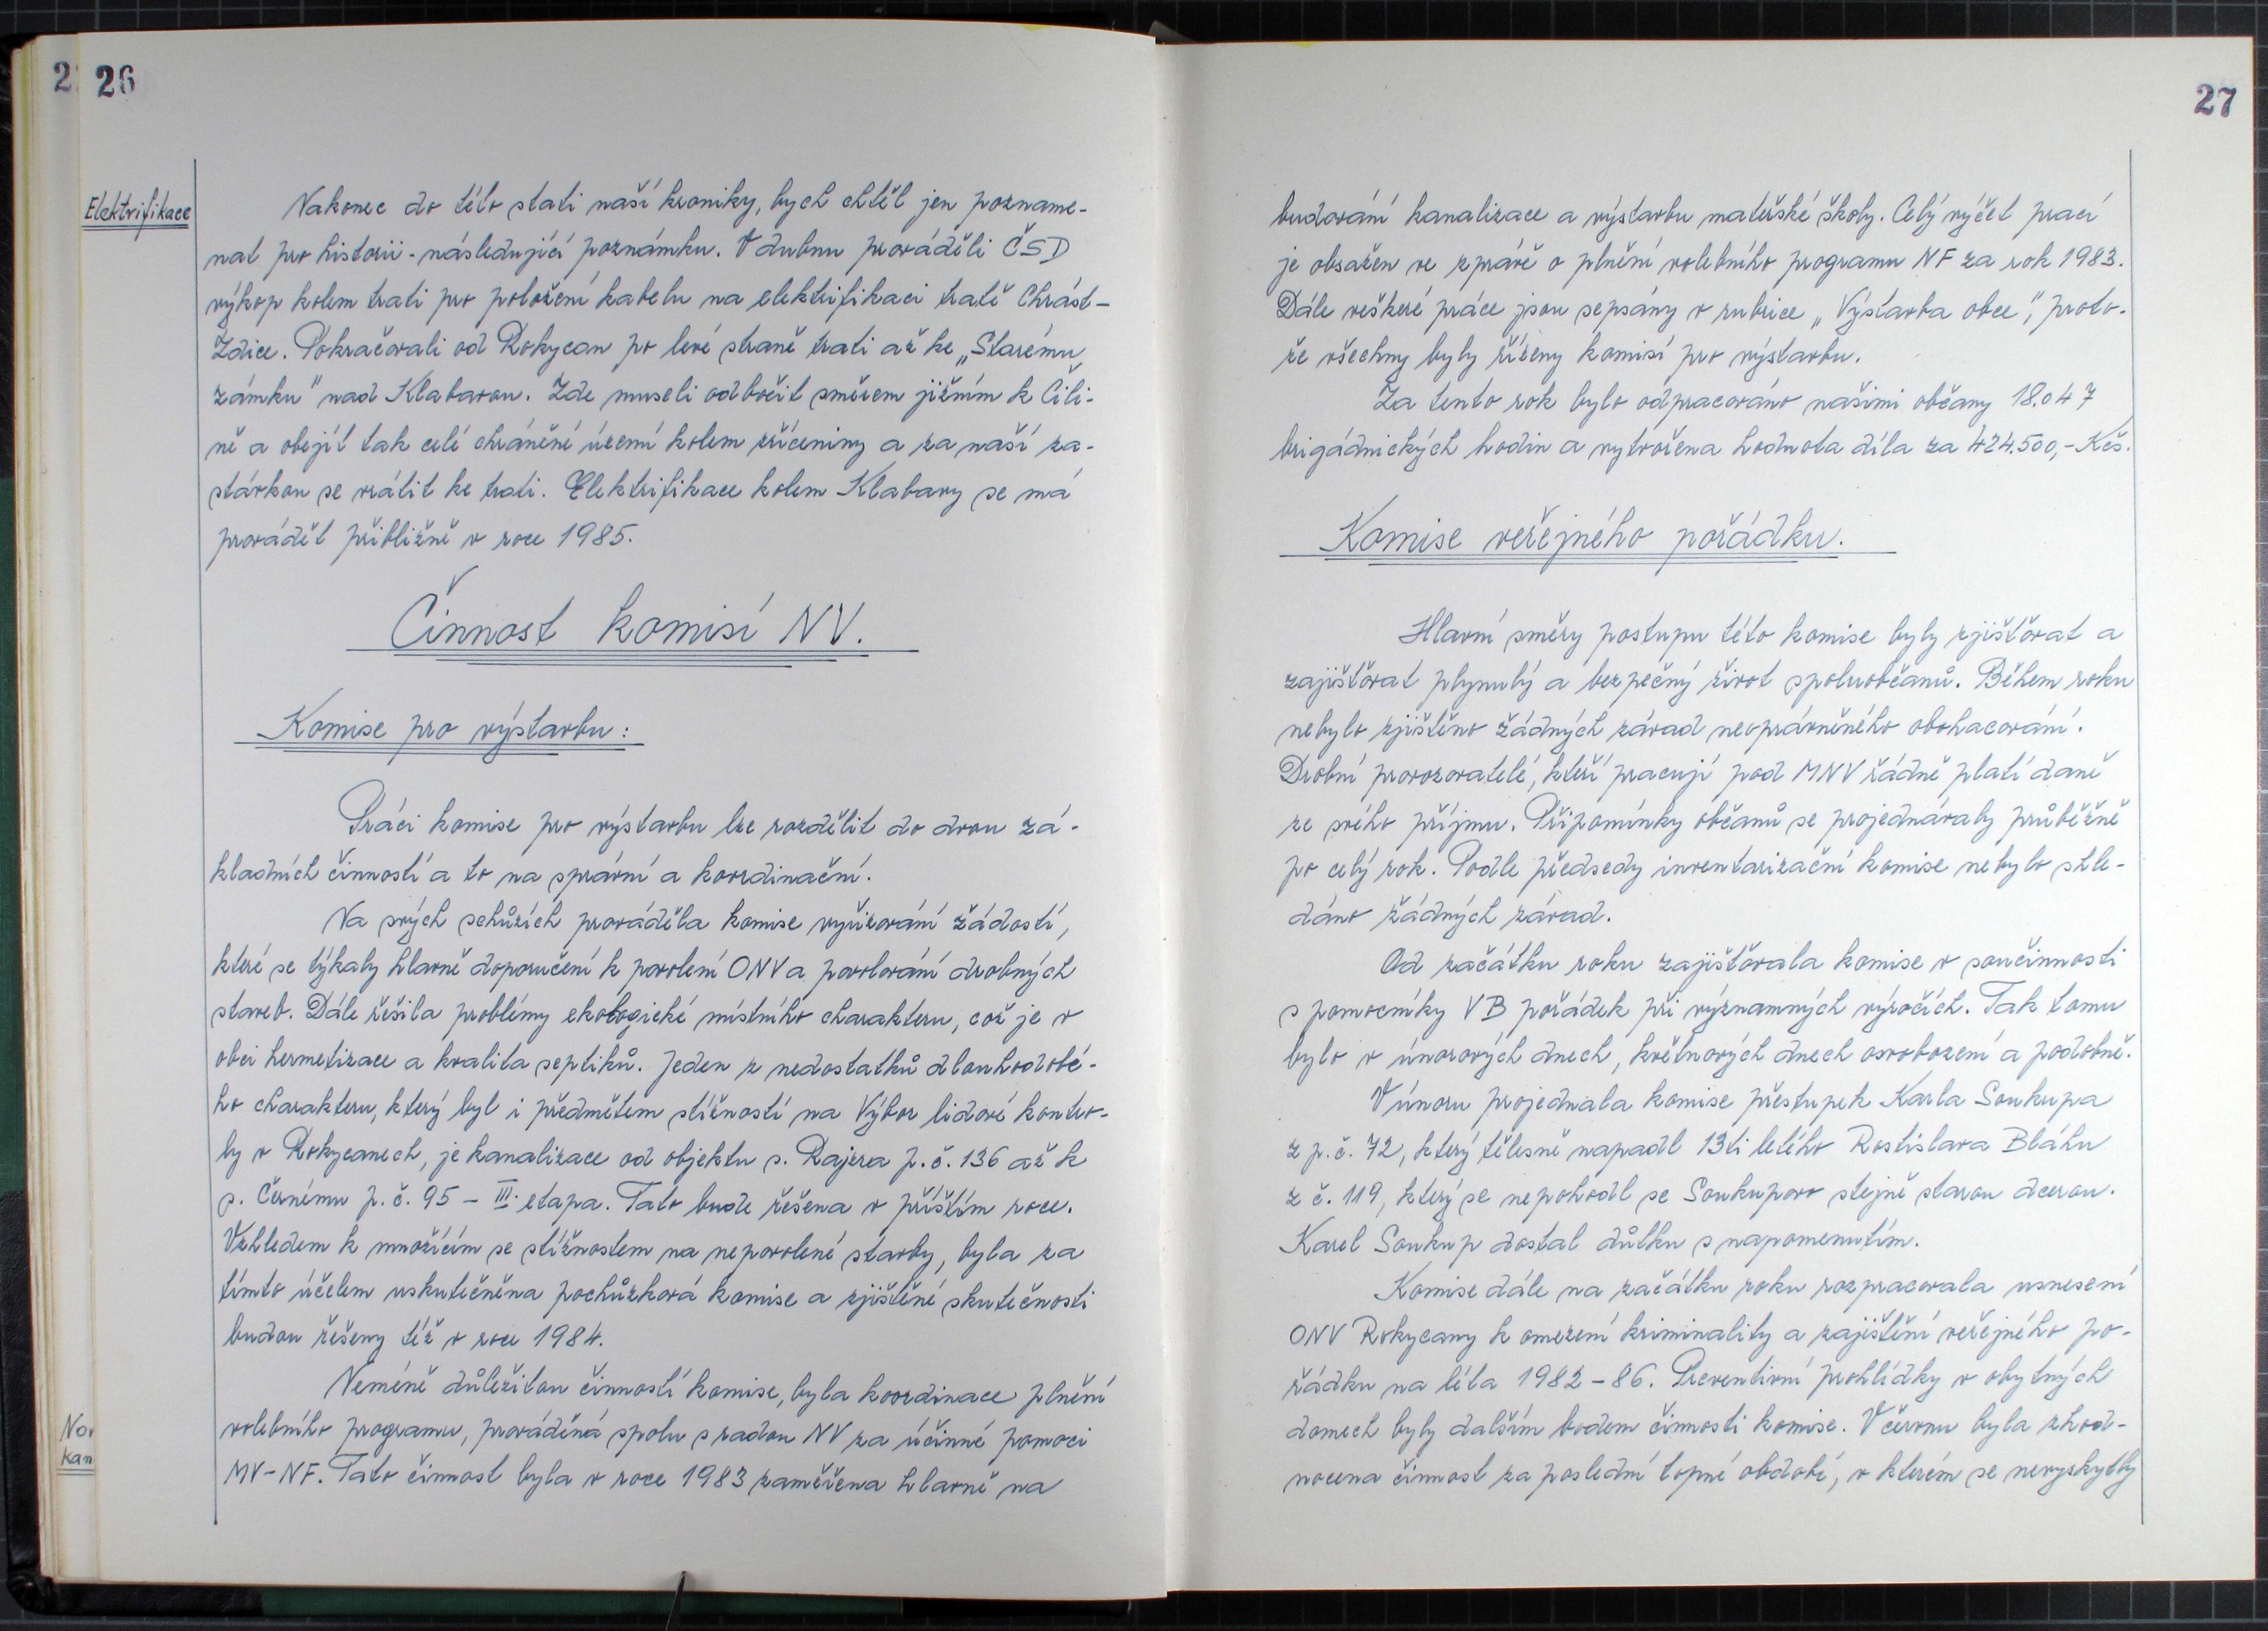 2
26
Elektrifikace
Nakonec do této stati naší kroniky, bych chtěl jen pozname-
nat pro historii - následující poznámku. V dubnu prováděli ČSD
výkop kolem trati pro položení kabelu na elektrifikaci tratě Chrást-
Zdice. Pokračovali od Rokycan po levé straně trati až ke „Starému
zámku" nad Klabavou. Zde museli odbočit směrem jižním k Cíli-
ně a obejít tak celé chráněné území kolem zříceniny a za naší za-
stávkou se vrátit ke trati. Elektrifikace kolem Klabavy se má
provádět přibližně v roce 1985.
Činnost komisí NV.
Komise pro výstavbu:
Práci komise pro výstavbu lze rozdělit do dvou zá-
kladních činností a to na správní a koordinační.
Na svých schůzích prováděla komise vyřizování žádostí,
které se týkaly hlavně doporučení k povolení ONV a povolování drobných
staveb. Dále řešila problémy ekologické místního charakteru, což je v
obci hermetizace a kvalita septiků. Jeden z nedostatků dlouhodobé-
ho charakteru, který byl i předmětem stížností na Výbor lidové kontro-
ly v Rokycanech, je kanalizace od objektu s. Rajzra p.č. 136 až k
s. Černému p.č. 95 - III. etapa. Tato bude řešena v příštím roce.
Vzhledem k množícím se stížnostem na nepovolené stavby, byla za
tímto účelem uskutečněna pochůzková komise a zjištěné skutečnosti
budou řešeny též v roce 1984.
Neméně důležitou činností komise, byla koordinace plnění
volebního programu, prováděná spolu s radou NV za účinné pomoci
MV-NF. Tato činnost byla v roce 1983 zaměřena hlavně na
27
budování kanalizace a výstavbu mateřské školy. Celý výčet prací
je obsažen ve zprávě o plnění volebního programu NF za rok 1983.
Dále veškeré práce jsou sepsány v rubrice „Výstavba obce", proto-
že všechny byly řízeny komisí pro výstavbu.
Za tento rok bylo odpracováno našimi občany 18.047
brigádnických hodin a vytvořena hodnota díla za 424.500,- Kčs.
Komise veřejného pořádku.
Hlavní směry postupu této komise byly zjišťovat a
zajišťovat plynulý a bezpečný život spoluobčanů. Během roku
nebylo zjištěno žádných závad neoprávněného obohacování.
Drobní provozovatelé, kteří pracují pod MNV řádně platí daně
ze svého příjmu. Připomínky občanů se projednávaly průběžně
po celý rok. Podle předsedy inventarizační komise nebylo shle-
dáno žádných závad.
Od začátku roku zajišťovala komise v součinnosti
s pomocníky VB pořádek při významných výročích. Tak tomu
bylo v únorových dnech, květnových dnech osvobození a podobně.
V únoru projednala komise přestupek Karla Soukupa
z p.č. 72, který tělesně napadl 13ti letého Rostislava Bláhu
z č. 119, který se nepohodl se Soukupovo stejně starou dcerou.
Karel Soukup dostal důtku s napomenutím.
Komise dále na začátku roku rozpracovala usnesení
ONV Rokycany k omezení kriminality a zajištění veřejného po-
řádku na léta 1982-86. Preventivní prohlídky v obytných
domech byly dalším bodem činnosti komise. V červnu byla zhod-
nocena činnost za poslední topné období, v kterém se nevyskytly